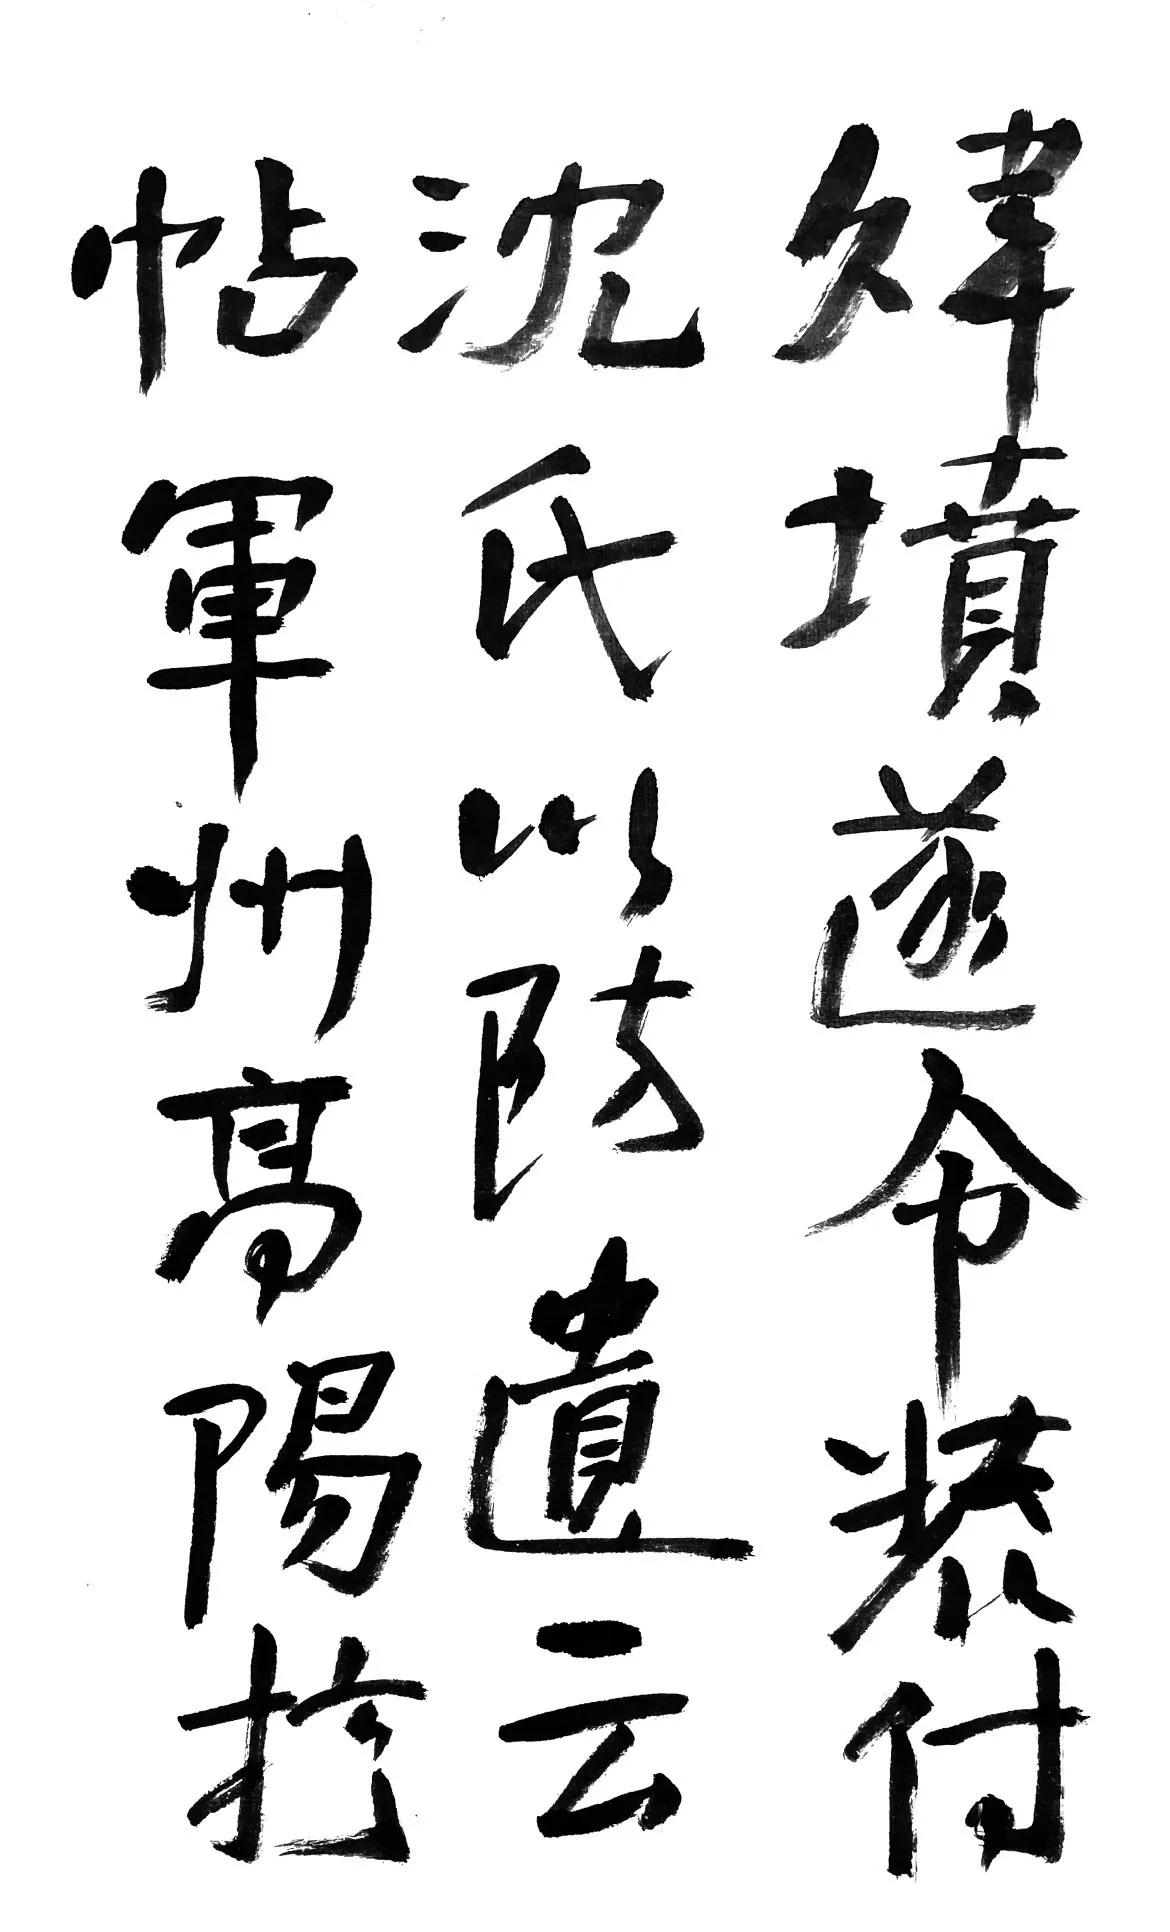 煒墳遂令裝付
沈氏以防遺云
帖軍州高陽